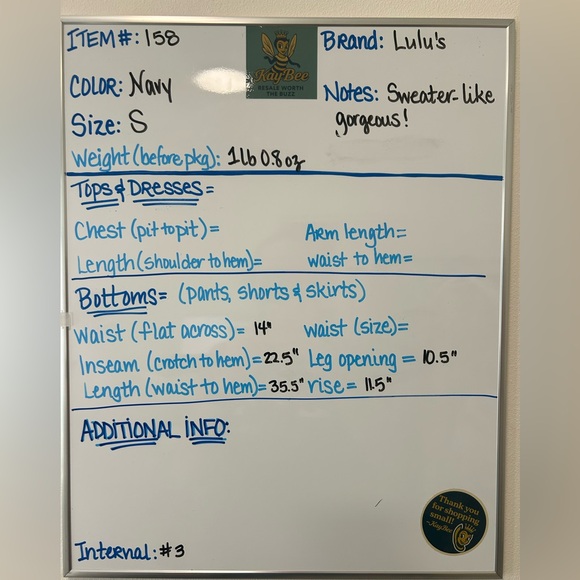 ITEM #: 158
KayBee
RESALE WORTH
THE BUZZ
Brand: Lulu's
COLOR: Navy
Notes: Sweater-like
gorgeous!
Size: S
Weight (before pkg): 1lb 0.8oz
TOPS & DRESSES=
Chest (pit to pit)=
ARM length=
Length (shoulder to hem)=
waist to hem=
BOTTOMS= (pants, shorts & skirts)
Waist (flat across)= 14"
waist (size)=
Inseam (crotch to hem)=22.5"
Leg opening = 10.5"
Length (waist to hem)=35.5"
rise= 11.5"
ADDITIONAL INFO:
Thank you
for shopping
small!
~KayBee
Internal: #3